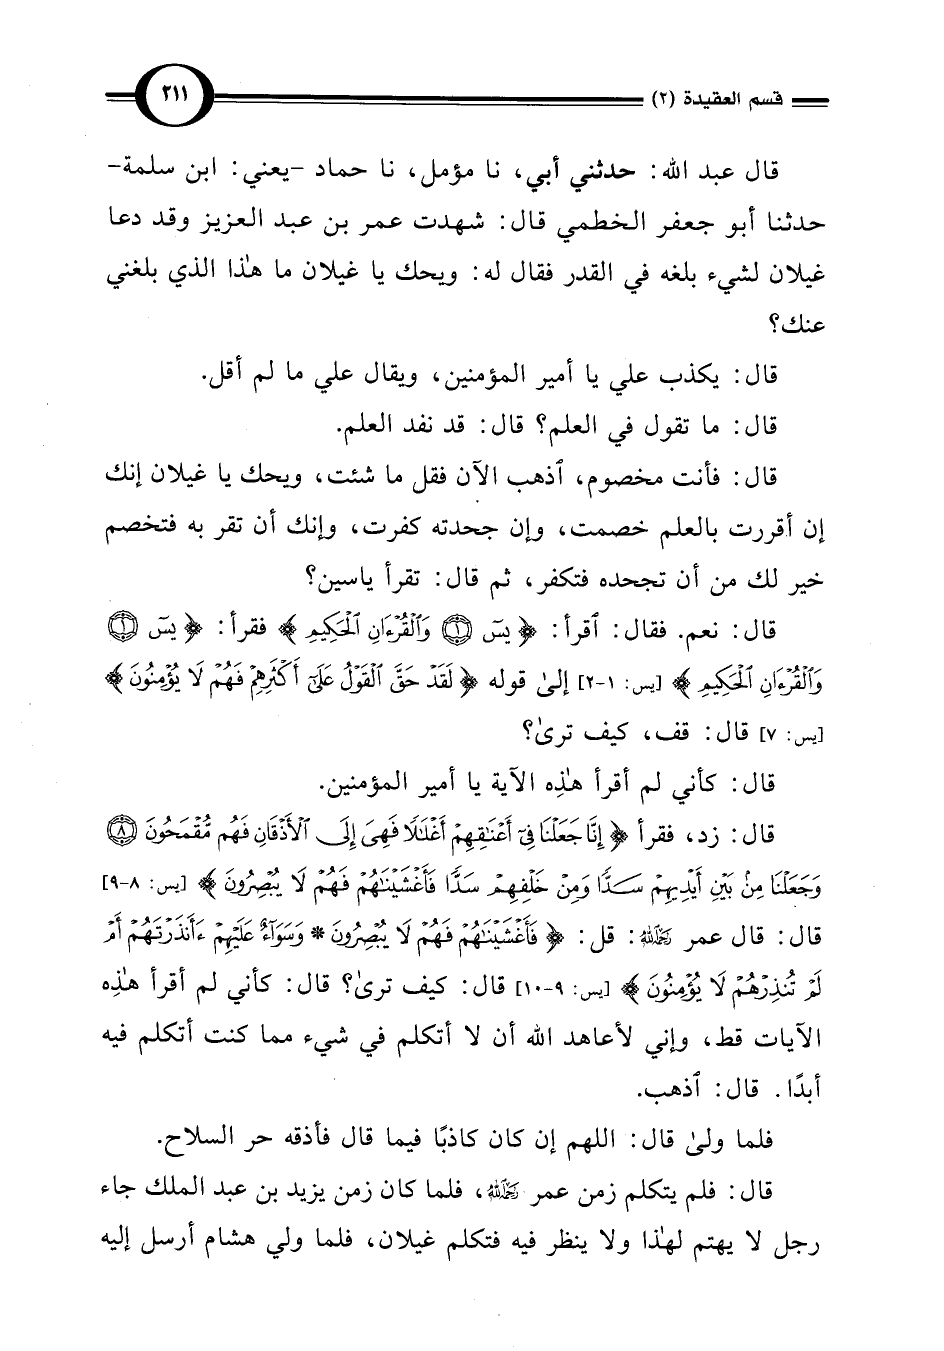 قسم العقيدة (٢) ٢١١
قال عبد الله: حدثني أبي، نا مؤمل، نا حماد -يعني: ابن سلمة-
حدثنا أبو جعفر الخطمي قال: شهدت عمر بن عبد العزيز وقد دعا
غيلان لشيء بلغه في القدر فقال له: ويحك يا غيلان ما هذا الذي بلغني
عنك؟
قال: يكذب علي يا أمير المؤمنين، ويقال علي ما لم أقل.
قال: ما تقول في العلم؟ قال: قد نفد العلم.
قال: فأنت مخصوم، ٱذهب الآن فقل ما شئت، ويحك يا غيلان إنك
إن أقررت بالعلم خصمت، وإن جحدته كفرت، وإنك أن تقر به فتخصم
خير لك من أن تجحده فتكفر، ثم قال: تقرأ ياسين؟
قال: نعم. فقال: ٱقرأ: ﴿يسٓ ۝١ وَٱلۡقُرۡءَانِ ٱلۡحَكِيمِ﴾ فقرأ: ﴿يسٓ ۝١
وَٱلۡقُرۡءَانِ ٱلۡحَكِيمِ﴾ [يس: ١-٢] إلىٰ قوله ﴿لَقَدۡ حَقَّ ٱلۡقَوۡلُ عَلَىٰٓ أَكۡثَرِهِمۡ فَهُمۡ لَا يُؤۡمِنُونَ﴾
[يس: ٧] قال: قف، كيف ترىٰ؟
قال: كأني لم أقرأ هٰذِه الآية يا أمير المؤمنين.
قال: زد، فقرأ ﴿إِنَّا جَعَلۡنَا فِيٓ أَعۡنَٰقِهِمۡ أَغۡلَٰلٗا فَهِيَ إِلَى ٱلۡأَذۡقَانِ فَهُم مُّقۡمَحُونَ ۝٨
وَجَعَلۡنَا مِنۢ بَيۡنِ أَيۡدِيهِمۡ سَدّٗا وَمِنۡ خَلۡفِهِمۡ سَدّٗا فَأَغۡشَيۡنَٰهُمۡ فَهُمۡ لَا يُبۡصِرُونَ﴾ [يس: ٨-٩]
قال: قال عمر رحمه الله: قل: ﴿فَأَغۡشَيۡنَٰهُمۡ فَهُمۡ لَا يُبۡصِرُونَ * وَسَوَآءٌ عَلَيۡهِمۡ ءَأَنذَرۡتَهُمۡ أَمۡ
لَمۡ تُنذِرۡهُمۡ لَا يُؤۡمِنُونَ﴾ [يس: ٩-١٠] قال: كيف ترىٰ؟ قال: كأني لم أقرأ هٰذِه
الآيات قط، وإني لأعاهد الله أن لا أتكلم في شيء مما كنت أتكلم فيه
أبدًا. قال: ٱذهب.
فلما ولىٰ قال: اللهم إن كان كاذبًا فيما قال فأذقه حر السلاح.
قال: فلم يتكلم زمن عمر رحمه الله، فلما كان زمن يزيد بن عبد الملك جاء
رجل لا يهتم لهٰذا ولا ينظر فيه فتكلم غيلان، فلما ولي هشام أرسل إليه